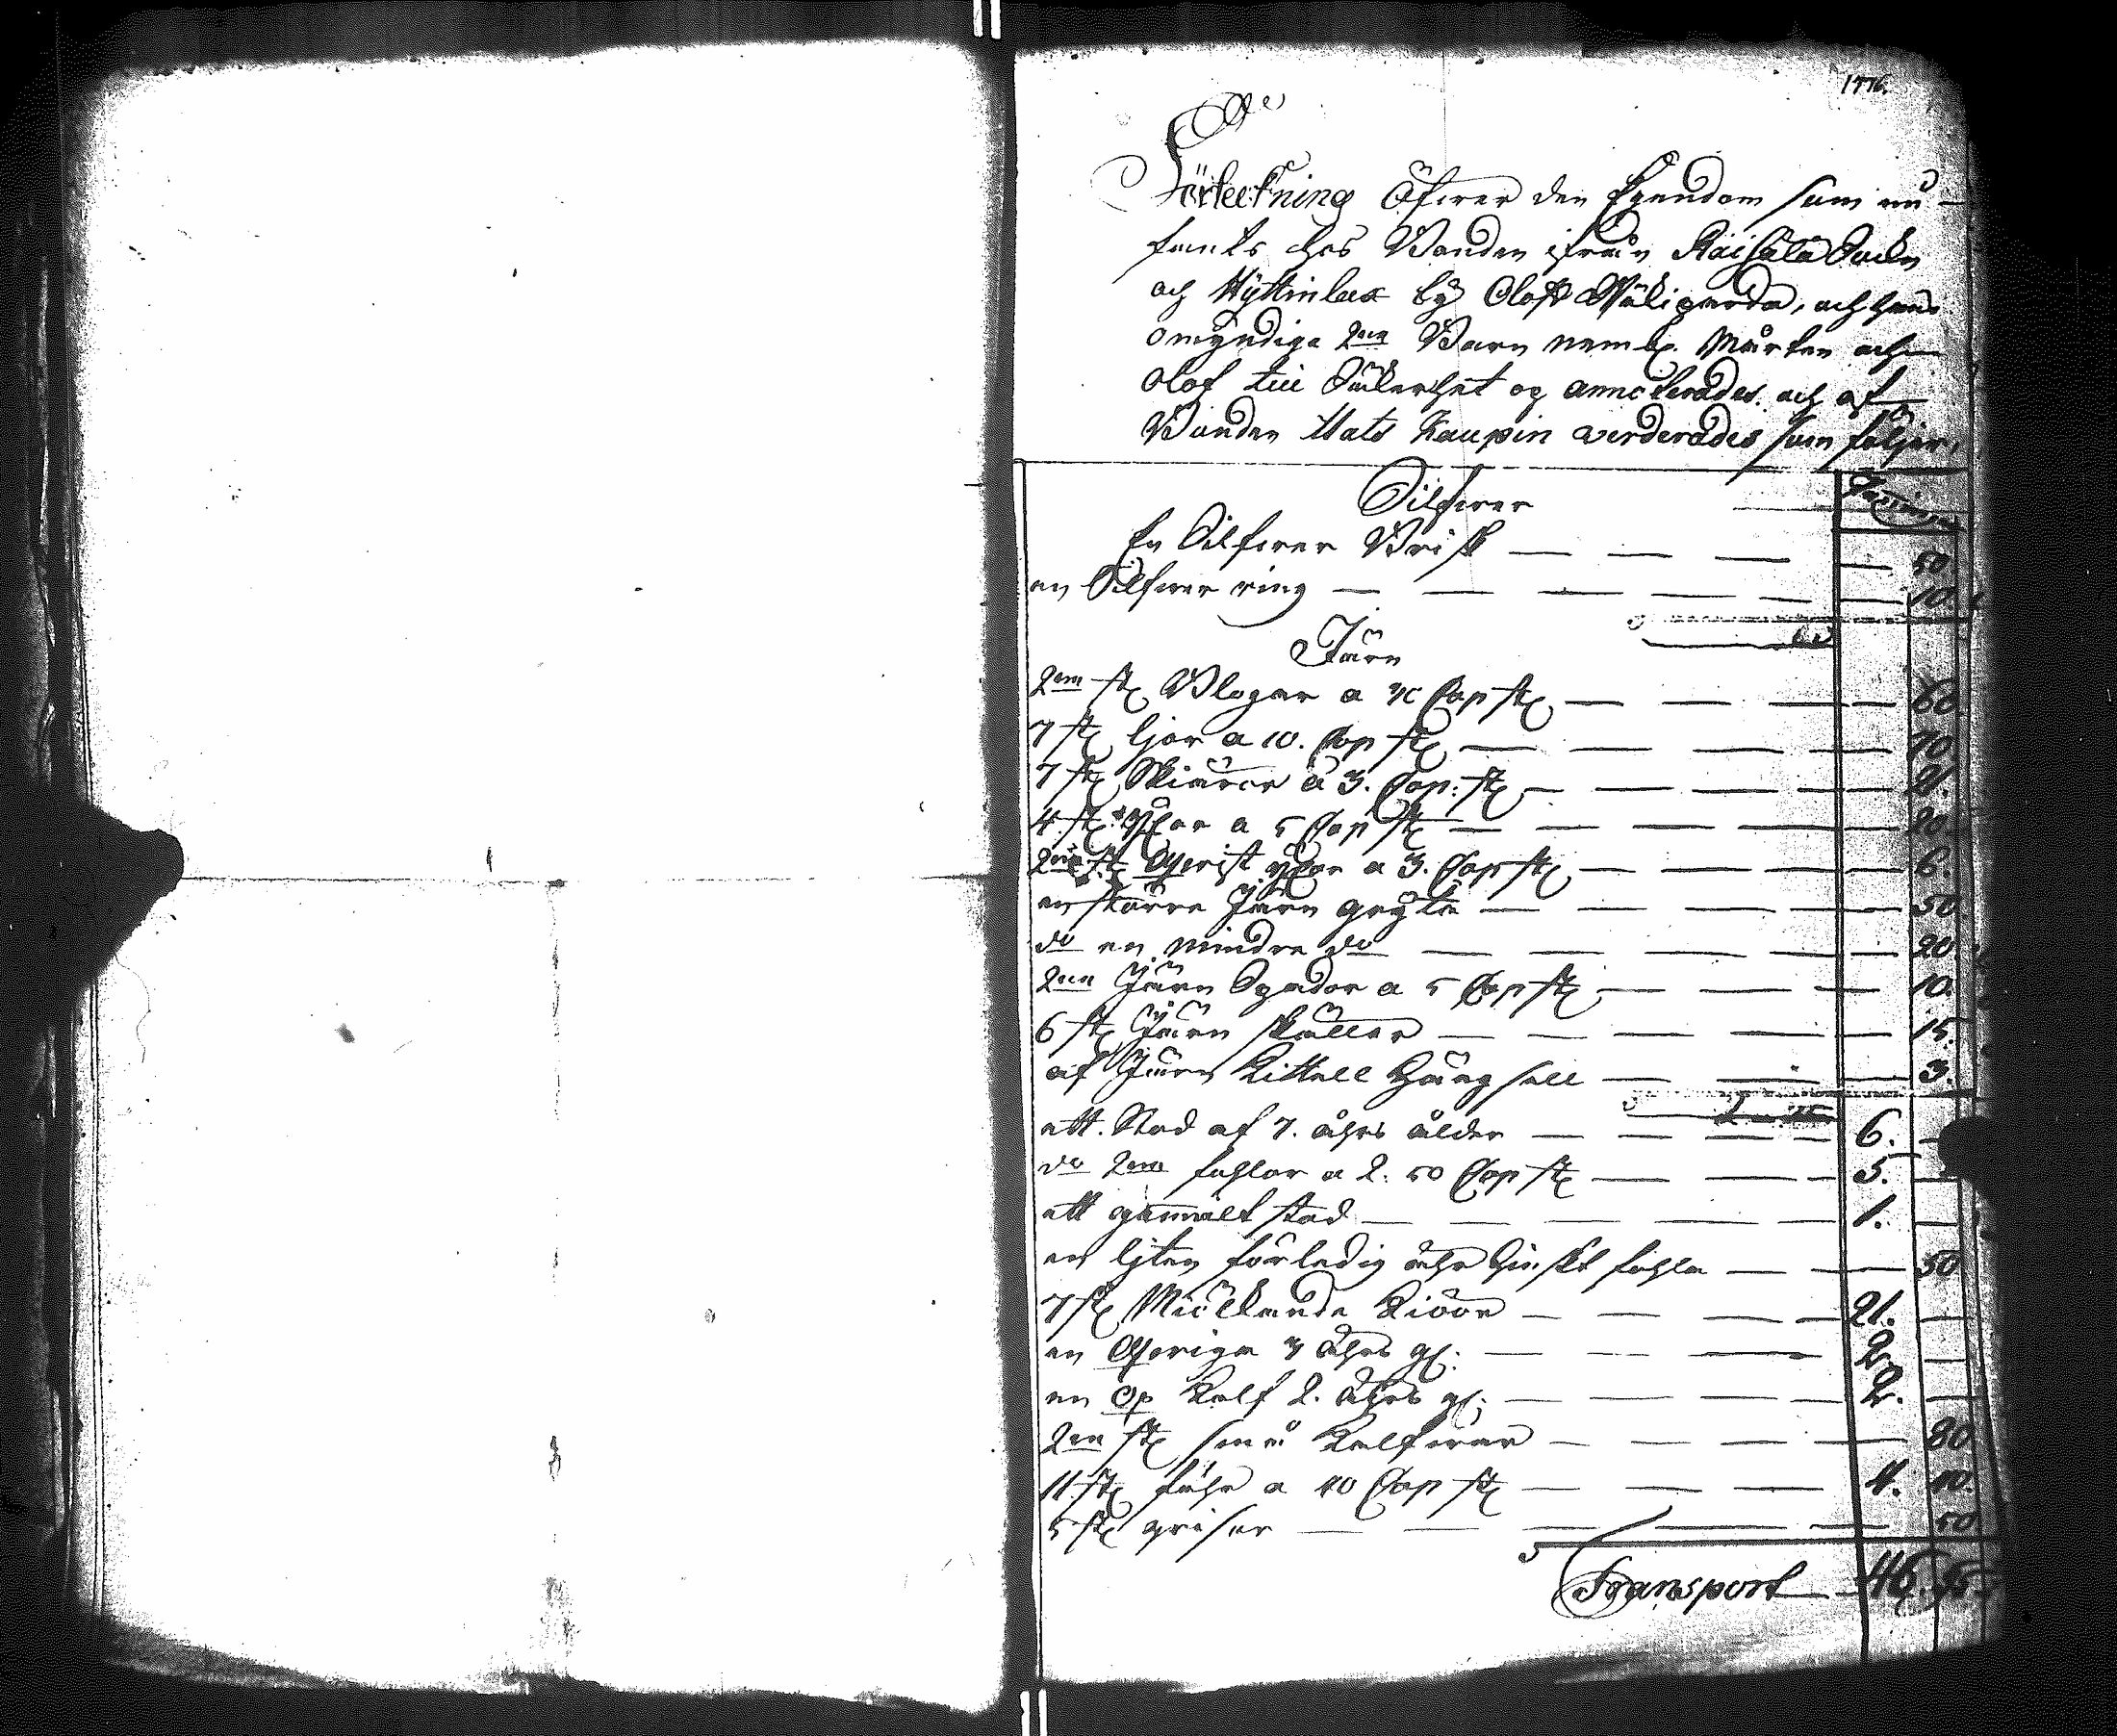 1776.
Förteckning öfwer den Egendom som nu
fants hos Bonden ifrån Räisälä Sockn
och Hytinlax by Olof Wäliparda, och hans
omyndiga 2ne Barn neml. Mårten och
Olof till Säkerhet og annoterades och af
Bonden Mats Kaupin verderades som följer,
Silfwer
En Silfwer Brisk — — — 50
en Silfwer ring — — — 10.
Järn
2ne st Plogar a 30 Cop st — — 60
7 st ljar a 10. Cop st — — 70
7 st Skiäror a 3. Cop: st — — 21.
4 st yxor a 5 Cop st — — 20.
2ne st yxor a 3. Cop st — — 6.
en större Järn gryta — — 50
do en mindre do — — 20.
2ne Järn Spador a 5 Cop st — — 10.
6 st Järn skällor — — 15.
af Järn Kittell — — 3.
ett Stod af 7. åhrs ålder — — 6. —
do 2ne fohlar a 2: 50 Cop st — — 5. —
ett gammalt stod — — 1. —
en lijten förledig åhr fohla — — 50
7 st Miölkande Kiöör — — 21. —
en Qwiga 3 åhrs gl: — — 2. —
en Kalf 2. åhrs gl: — — 2. —
2ne st små Kalfwar — — 80
11 st fåhr a 40 Cop st — — 4. 40.
5 st grisar — — 50
Transport — 46. 95.